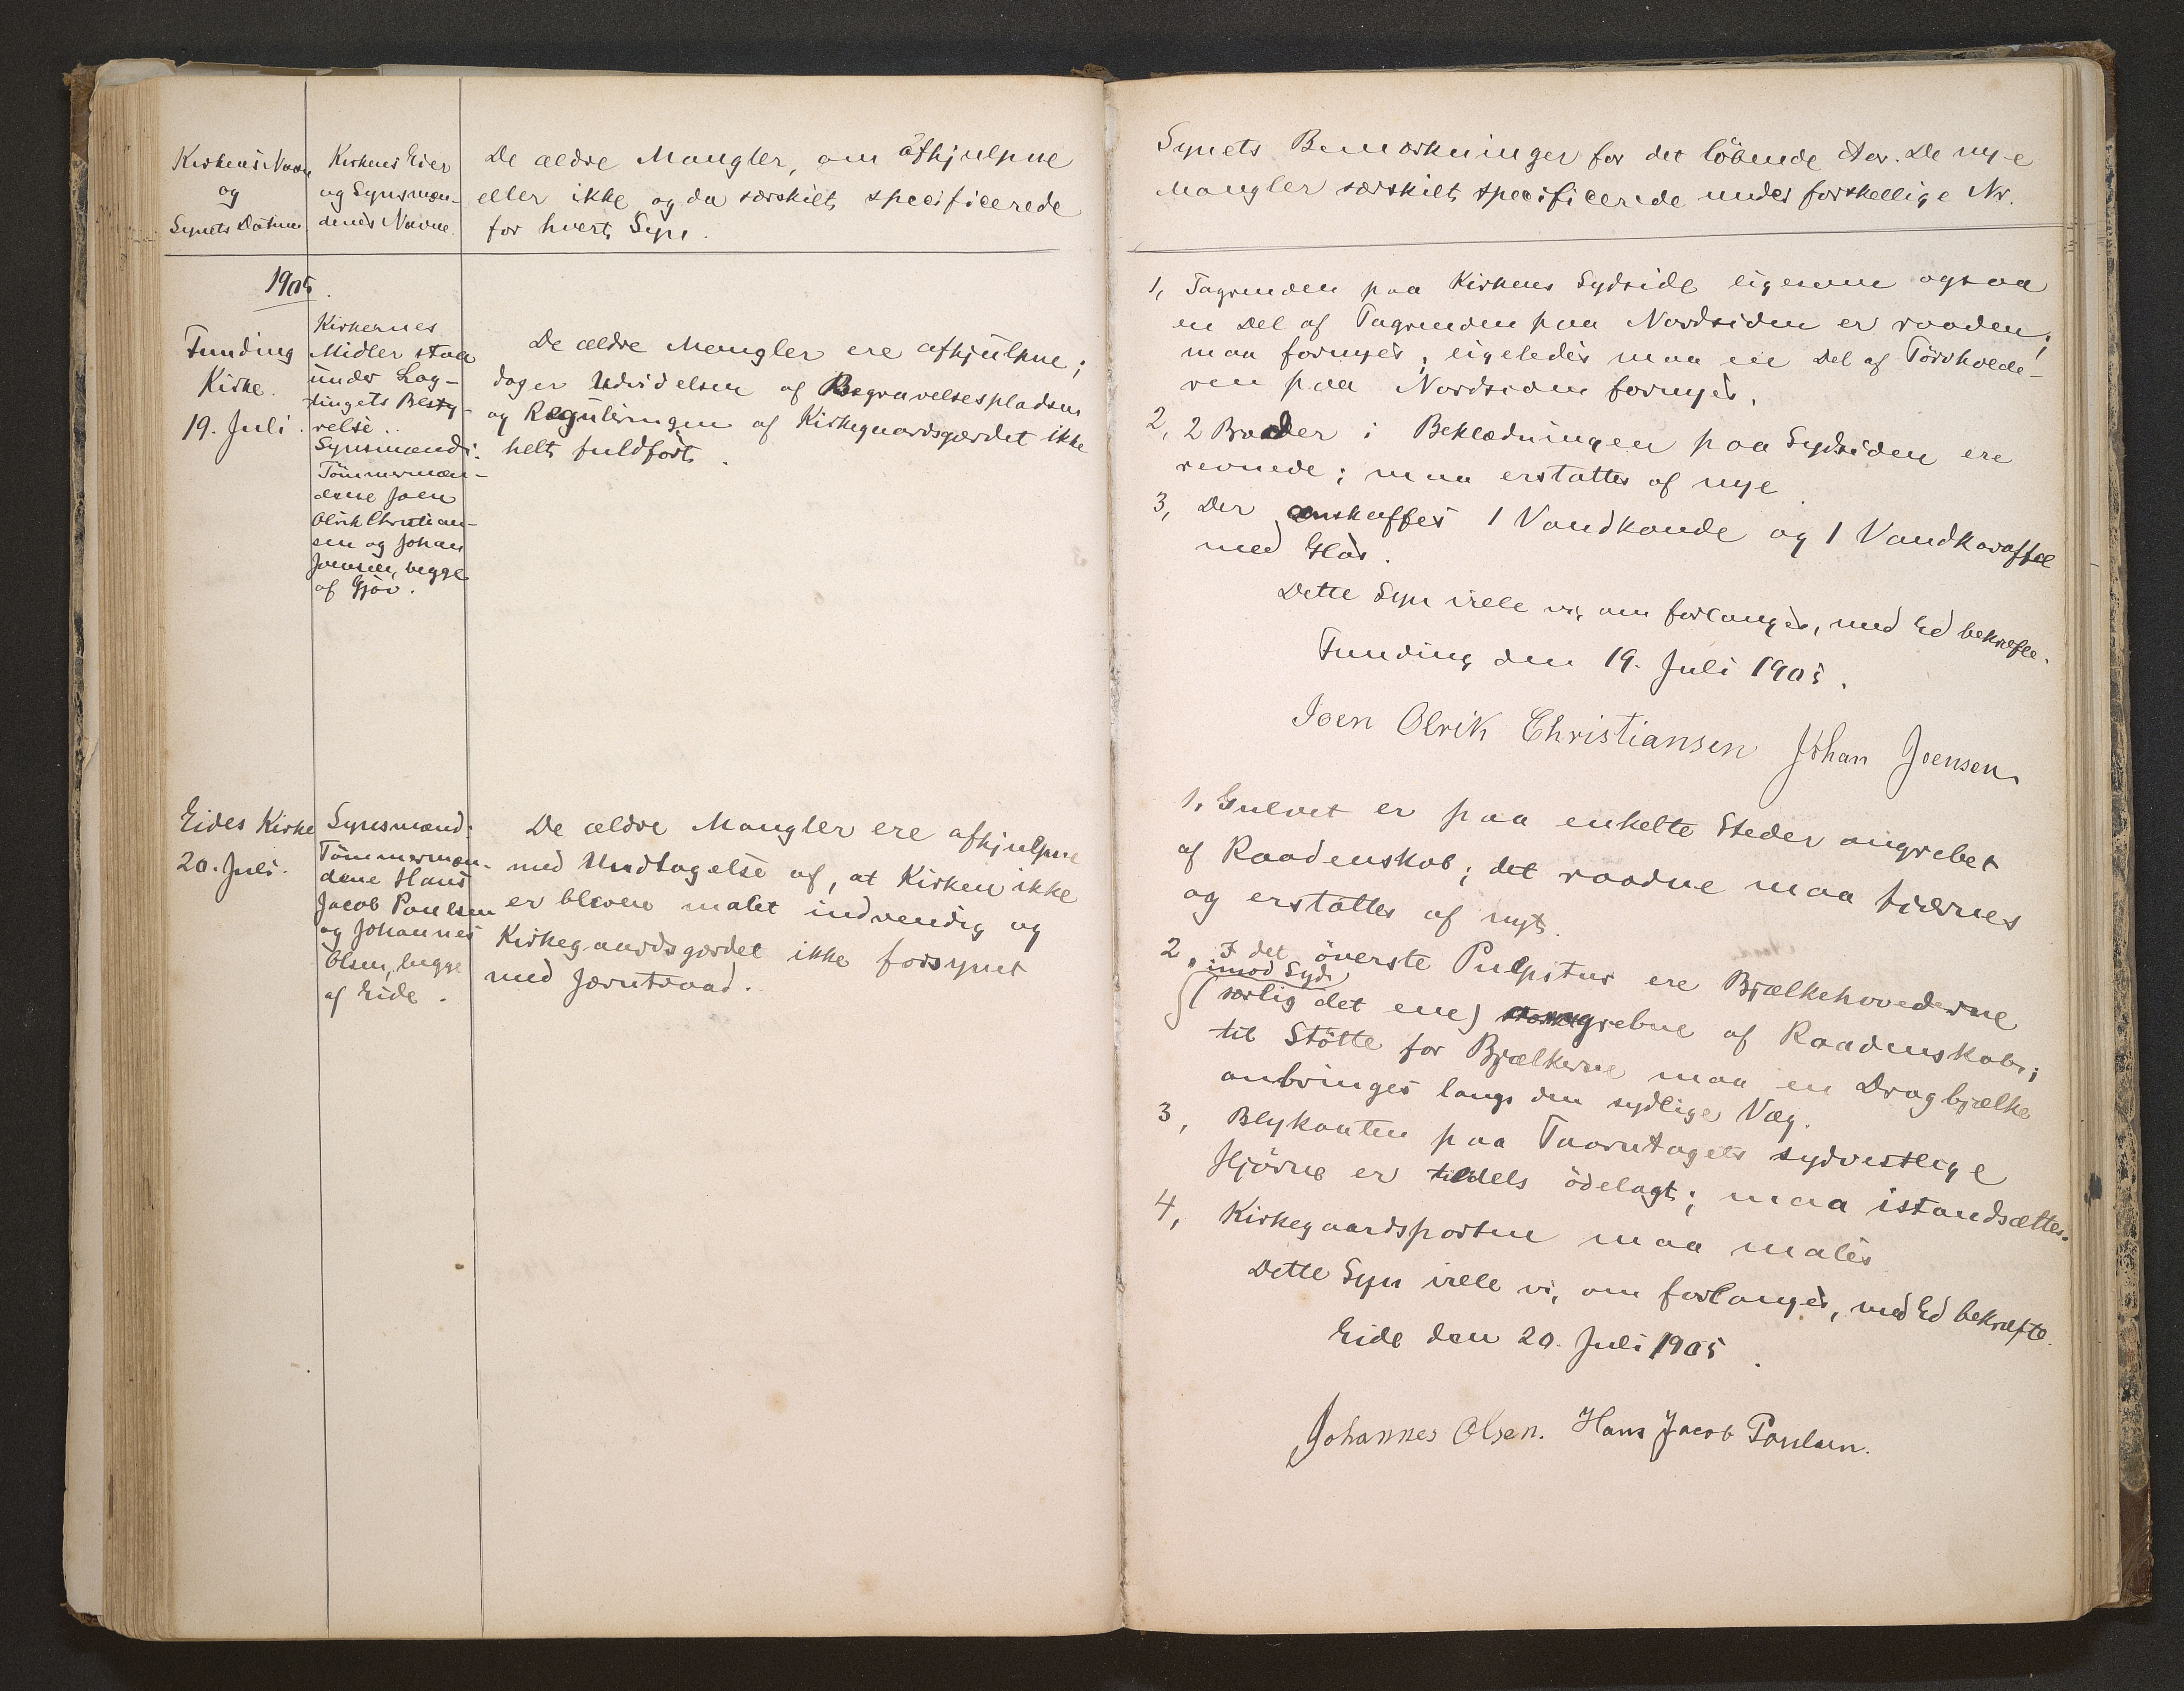 Kirkens Navn
og
Synets Datum
Kirkens Eier
og Synsmæn-
denes Navne.
De ældre Mangler, om afhjulpne
eller ikke og da særskilt specificerede
for hvert Syn.
1905.
Funding
Kirke.
19. Juli.
Kirkernes
Midler staa
under Lag-
tingets Besty-
relse.
Synsmænd:
Tömmermæn-
dene Joen
Olrik Christian-
sen og Johan
Joensen, begge
af Gjov.
De ældre Mangler ere afhjulpne;
dog er Udvidelsen af Begravelsespladsen
og Reguleringen af Kirkegaardsgærdet ikke
helt fuldfört.
Eides Kirke
20. Juli.
Synsmænd:
Tömmermæn-
dene Hans
Jacob Poulsen
og Johannes
Olsen, begge
af Eide.
De ældre Mangler ere afhjulpne
med Undtagelse af, at Kirken ikke
er bleven malet indvendig og
Kirkegaardsgærdet ikke forsynet
med Jærntraad.
Synets Bemærkninger for det löbende Aar. De nye
Mangler særskilt specificerede under forskellige Nr.
1, Tagrenden paa Kirkens Sydside ligesom ogsaa
en Del af Tagrenden paa Nordsiden er raaden;
maa fornyes; ligeledes maa en Del af Törvholde-
ren paa Nordsiden fornyes.
2, 2 Bræder i Beklædningen paa Sydsiden ere
revnede; maa erstattes af nye.
3, Der anskaffes 1 Vandkande og 1 Vandkaraffel
med Glas.
Dette Syn ville vi, om forlanges, med Ed bekræfte.
Funding den 19. Juli 1905.
Joen Olrik Christiansen Johan Joensen
1, Gulvet er paa enkelte Steder angrebet
af Raadenskab; det raadne maa fjærnes
og erstattes af nyt.
2, I det överste Pulpitur ere Bjælkehovederne
imod Syd
(særlig det ene) angrebne af Raadenskab;
til Stötte for Bjælkerne maa en Dragbjælke
anbringes langs den sydlige Væg.
3, Blykanten paa Taarntagets sydvestlige
Hjörne er tildels ödelagt; maa istandsættes.
4, Kirkegaardsporten maa males
Dette Syn ville vi, om forlanges, med Ed bekræfte.
Eide den 20. Juli 1905.
Johannes Olsen. Hans Jacob Poulsen.